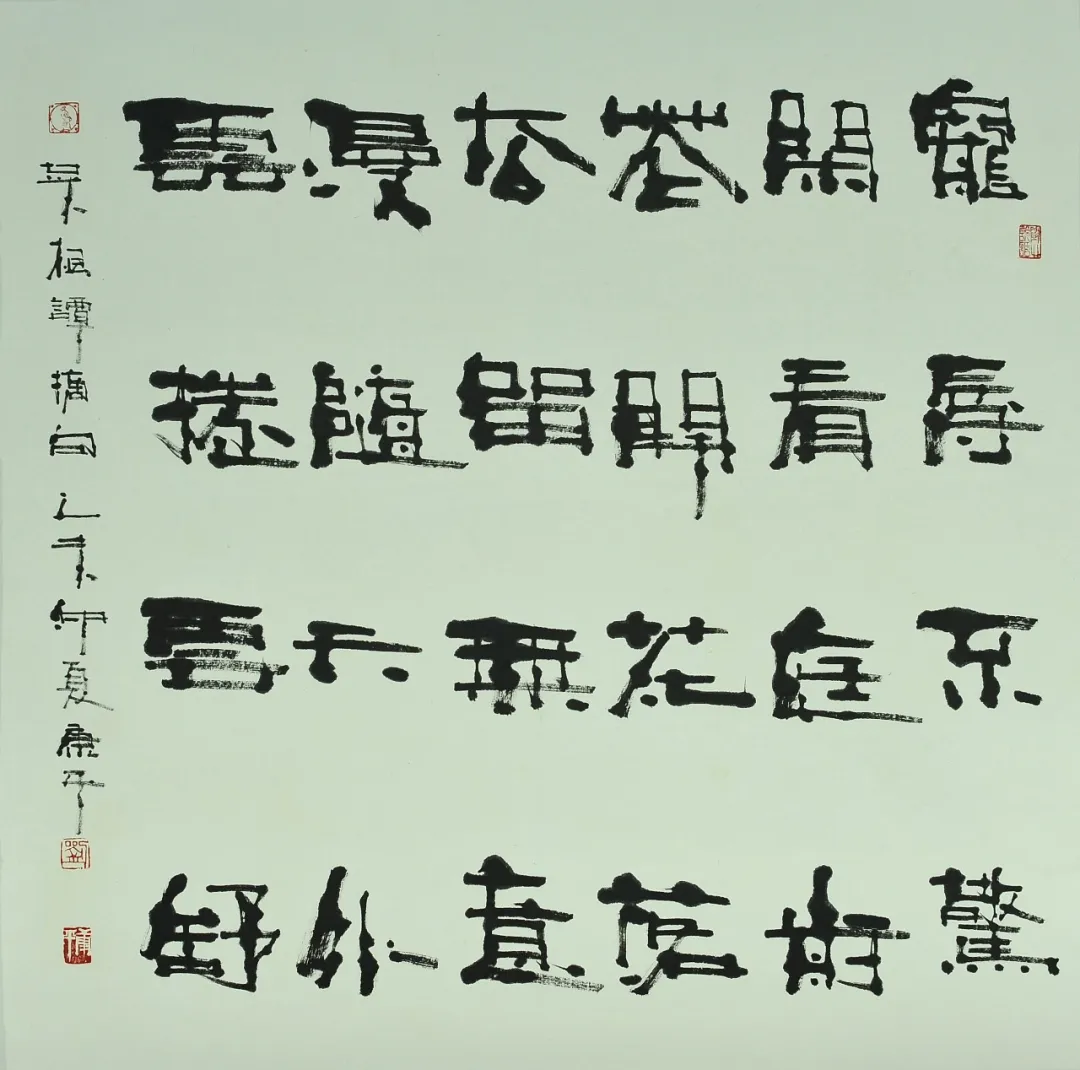 寵辱不驚
閑看庭前
花開花落
去留無意
漫隨天外
雲捲雲舒
菜根譚摘句 乙未仲夏康平